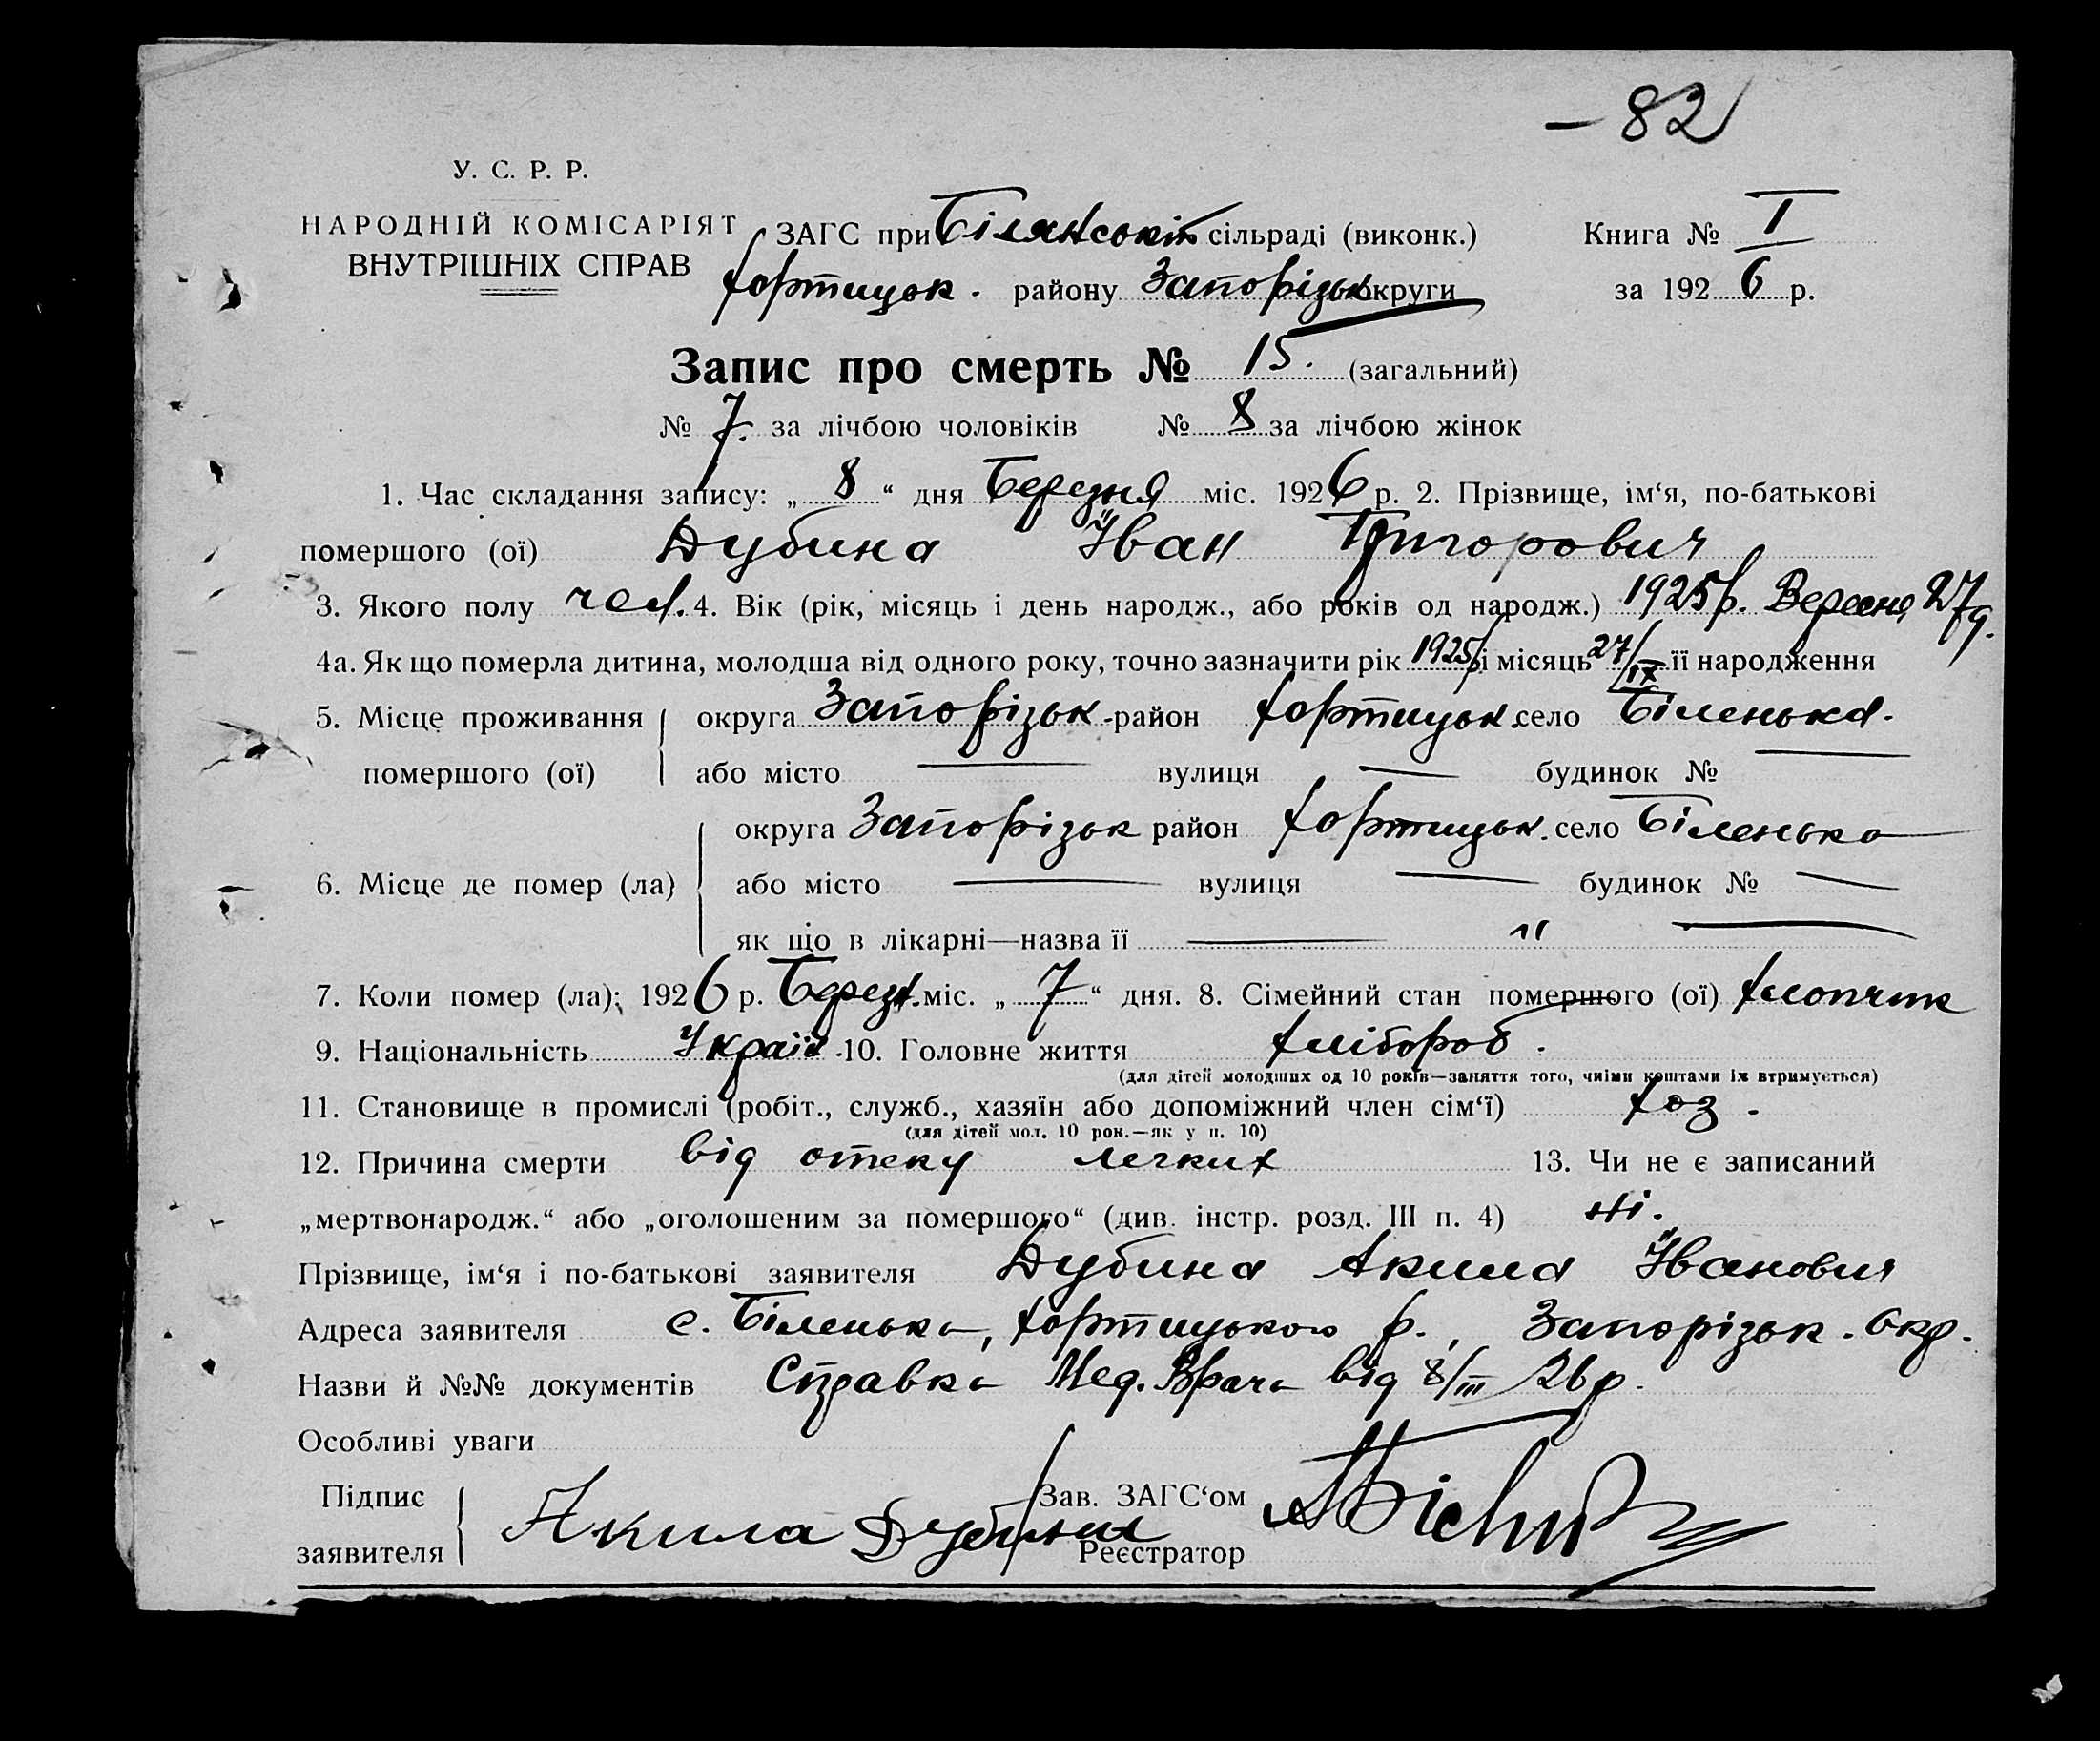 — 82
У. С. Р. Р.
НАРОДНІЙ КОМІСАРІЯТ
ВНУТРІШНІХ СПРАВ
ЗАГС при Білянській сільраді (виконк.)
Хортицьк. району Запорізьк округи
Книга № I
за 1926 р.
Запис про смерть № 15. (загальний)
№ 7. за лічбою чоловіків № 8 за лічбою жінок
1. Час складання запису: „ 8 “ дня Березня міс. 1926 р. 2. Прізвище, ім‘я, по-батькові
помершого (ої) Дубина Іван Григорович
3. Якого полу чол. 4. Вік (рік, місяць і день народж., або років од народж.) 1925р. Вересня 27д.
4а. Як що померла дитина, молодша від одного року, точно зазначити рік 1925р і місяць 27/IX її народження
5. Місце проживання помершого (ої) округа Запорізьк - район Хортицьк село Біленька.
або місто — вулиця — будинок № —
6. Місце де помер (ла) округа Запорізьк район Хортицьк. село Біленька
або місто — вулиця — будинок № —
як що в лікарні—назва її — " —
7. Коли помер (ла): 1926 р. Березн. міс. „ 7 “ дня. 8. Сімейний стан помершого (ої) хлопчик
9. Національність Украін. 10. Головне життя хлібороб.
(для дітей молодших од 10 років—заняття того, чиїми коштами їх втримується)
11. Становище в промислі (робіт., служб., хазяїн або допоміжний член сім‘ї) хоз.
(для дітей мол. 10 рок.—як у п. 10)
12. Причина смерти від отеку легких 13. Чи не є записаний
„мертвонародж.“ або „оголошеним за помершого“ (див. інстр. розд. III п. 4) ні.
Прізвище, ім‘я і по-батькові заявителя Дубина Акила Іванович
Адреса заявителя с. Біленька, Хортицького р., Запорізьк. окр.
Назви й №№ документів Справка Мед. Врача від 8/III 26 р.
Особливі уваги
Підпис заявителя Акила Дубина
Зав. ЗАГС‘ом
Реєстратор